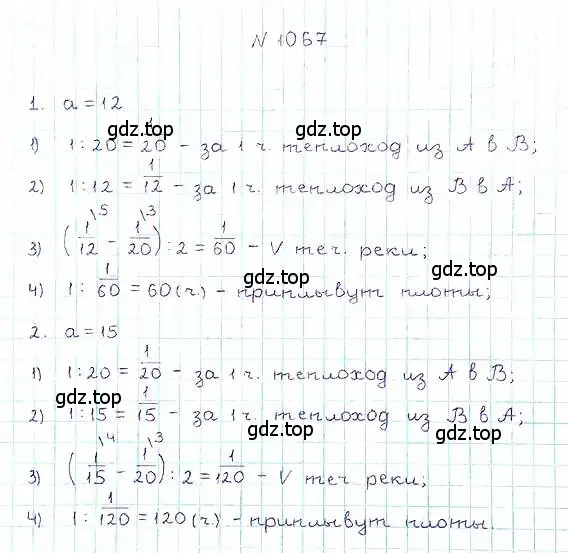 N 1067
1. a = 12
gdz.top gdz.top
1) 1 : 20 = 1/20 - за 1 ч. теплоход из A в B;
2) 1 : 12 = 1/12 - за 1 ч. теплоход из B в A;
3) (1/12 \5 - 1/20 \3) : 2 = 1/60 - V теч. реки;
gdz.top gdz.top
4) 1 : 1/60 = 60 (ч.) - приплывут плоты;
2. a = 15
1) 1 : 20 = 1/20 - за 1 ч. теплоход из A в B;
gdz.top gdz.top
2) 1 : 15 = 1/15 - за 1 ч. теплоход из B в A;
gdz.top
3) (1/15 \4 - 1/20 \3) : 2 = 1/120 - V теч. реки;
4) 1 : 1/120 = 120 (ч.) - приплывут плоты.